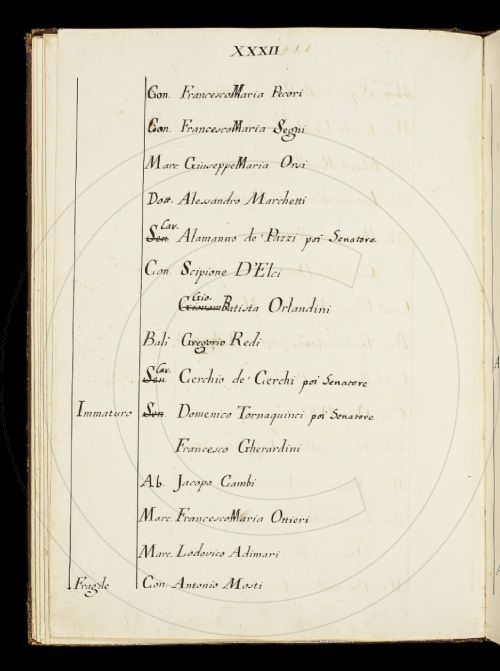 XXXII
Con. FrancescoMaria Pecori
Con. FrancescoMaria Segni
Marc. GiuseppeMaria Orsi
Dott. Alessandro Marchetti
Cav.
Sen. Alamanno de' Pazzi poi Senatore
Con. Scipione D'Elci
Gio.
Batista Orlandini
Bali Gregorio Redi
Cav.
Sen. Cerchio de' Cerchi poi Senatore
Immaturo Sen. Domenico Tornaquinci poi Senatore
Francesco Gherardini
Ab. Jacopo Gambi
Marc. FrancescoMaria Ottieri
Marc. Lodovico Adimari
Fragile Con. Antonio Mosti